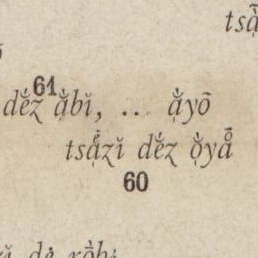 tsą̄
61
dĕ́z ą̆́bĭ, ... ą̆́yō
tsą̆́zĭ dĕ́z ǫ̆́yą̊̄
60